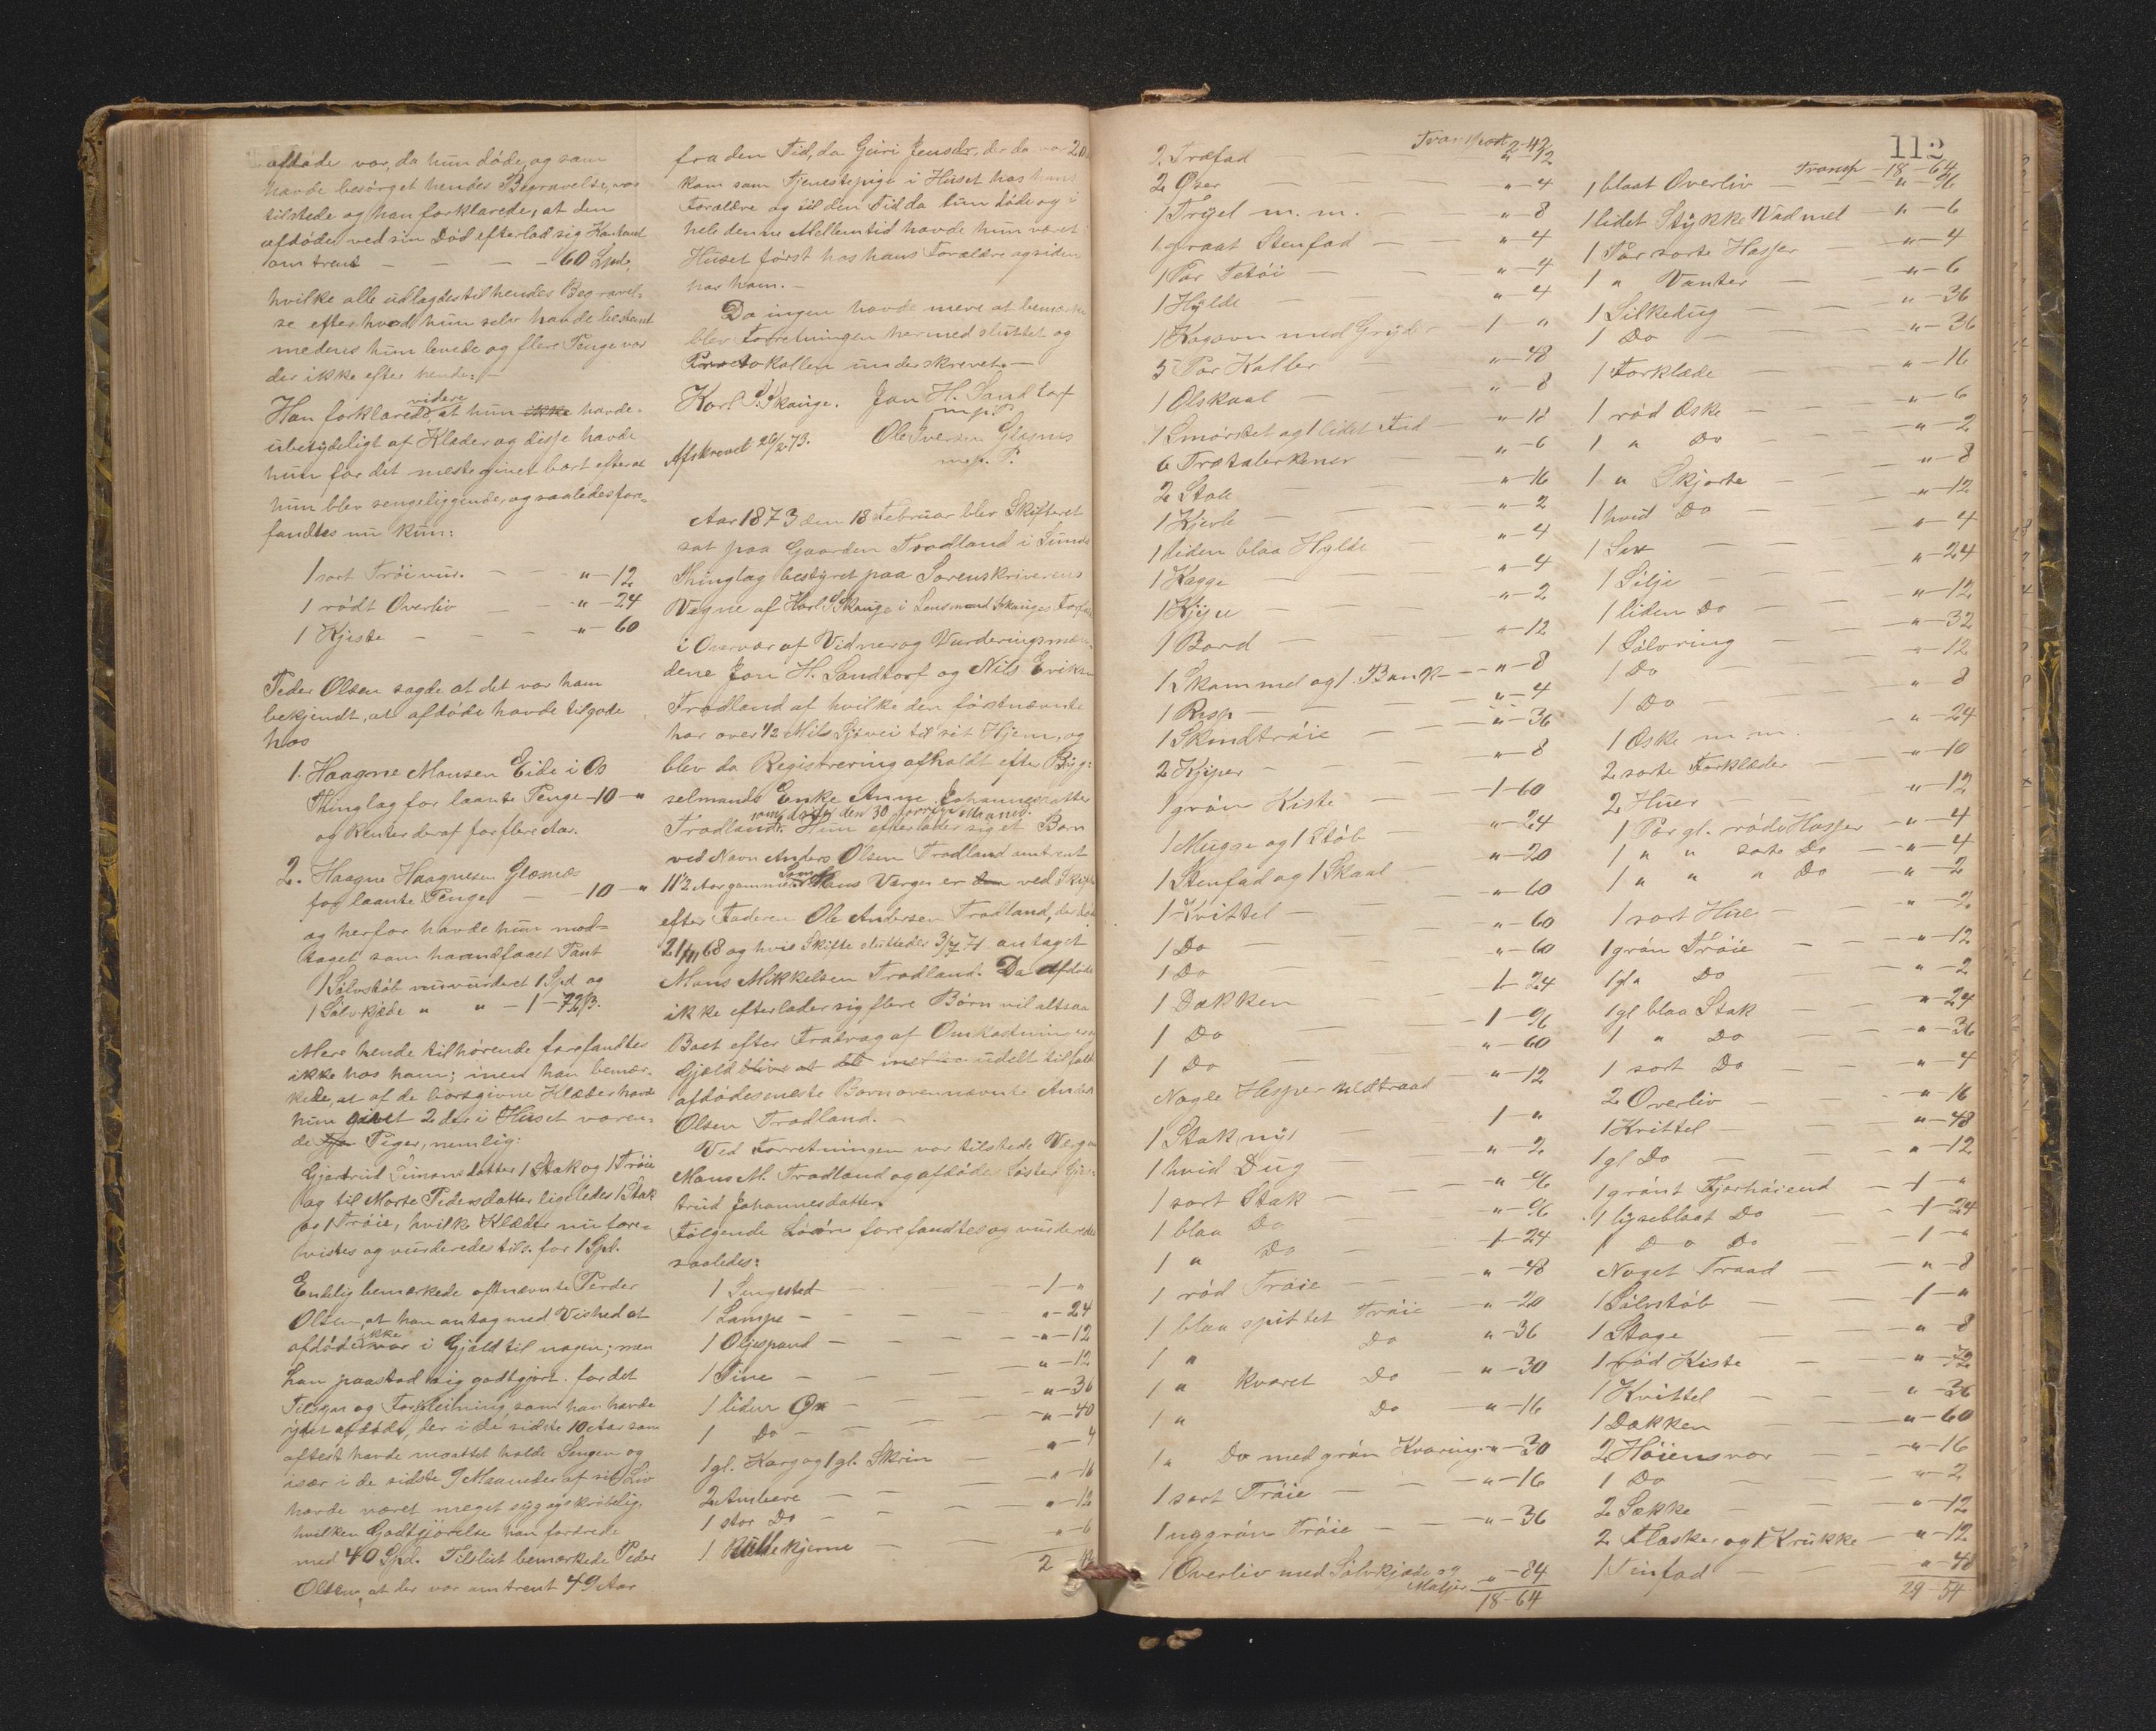 afdøde var, da hun døde, og som
havde besørget hendes Begravelse, var
tilstede og han forklarede, at den
afdøde ved sin Død efterlod sig Kontant
omtrent — — — 60 Spd,
hvilke alle udlagdes til hendes Begravel-
se efter hvad hun selv havde bestemt
medens hun levede og flere Penge var
der ikke efter hende. —
Han forklarede videre, at hun ikke havde
ubetydeligt af Klæder og disse havde
hun for det meste givet bort efterat
hun blev sengeliggende, og saaledes fore-
fandtes nu kun:
1 sort Trøie vur. — " — 12
1 rødt Overliv — " — 24
1 Kjiste — — — " — 60
Peder Olsen sagde at det var ham
bekjendt, at afdøde havde tilgode
hos
1. Haagne Monsen Eide i Os
Thinglag for laante Penge — 10 — "
og Renter deraf for flere Aar.
2. Haagne Haagnesen Glæsnæs
for laante Penge — 10 — "
og herfor havde hun mod-
taget som haandfaaet Pant
1 Sølvstøb nu vurderet 1 Spd og
1 Sølvkjæde " " — 1 — 72 ß.
Mere hende tilhørende forefandtes
ikke hos ham; men han bemær-
kede, at af de bortgivne Klæder havde
hun givet 2 der i Huset væren-
de Piger, nemlig:
Gjertrud Simonsdatter 1 Stak og 1 Trøie
og til Marte Pedersdatter ligeledes 1 Stak
og 1 Trøie, hvilke Klæder nu fore-
vistes og vurderedes tils. for 1 Spd.
Endelig bemærkede oftnævnte Peder
Olsen, at han antog med Vished at
afdøde ikke var i Gjæld til nogen; men
han paastod sig godtgjort for det
Tilsyn og Forpleining som han havde
ydet afdøde, der i de sidste 10 Aar som
oftest havde maattet holde Sengen og
især i de sidste 9 Maaneder af sit Liv
havde været meget syg og skrøbelig,
hvilken Godtgjørelse han fordrede
med 40 Spd. Tilslut bemærkede Peder
Olsen, at der var omtrent 49 Aar
fra den Tid, da Guri Jensdr, der da var 20
kom som Tjenestepige i Huset hos hans
Forældre og til den Tid da hun døde og i
hele denne Mellemtid havde hun været i
Huset først hos hans Forældre og siden
hos ham. —
Da ingen havde mere at bemærke
blev Forretningen hermed sluttet og
Protokollen underskrevet. —
Karl S. Skauge. Jon H. Sandtorf
m. p. P.
Afskrevet 26/2 73. Ole Iversen Glesnes
m. p. P.
Aar 1873 den 18 Februar blev Skifteret
sat paa Gaarden Trædland i Sunds
Thinglag bestyret paa Sorenskriverens
Vegne af Karl S Skauge i Lensmand Skauges Forfald
i Overvær af Vidner og Vurderingsmæn-
dene Jon H. Sandtorf og Nils Eriksen
Trædland af hvilke den førstnævnte
har over 1/2 Mils Sjøvei til sit Hjem, og
blev da Registrering afholdt efter Byg-
selmands Enke Anne Johannesdatter
Trædland, som døde den 30 forrige Maaned. Hun efterlader sig et Barn
ved Navn Anders Olsen Trædland omtrent
11 1/2 Aar gammel. Som Hans Verge er den ved Skifte
efter Faderen Ole Andersen Trædland, der døde
21/11 68 og hvis Skifte sluttedes 3/7 71 antaget
Mons Mikkelsen Trædland. Da Afdøde
ikke efterlader sig flere Børn vil altsaa
Boet efter Fradrag af Omkostninger og
Gjæld blive at udelt tilfalde
afdødes eneste Barn ovennævnte Anders
Olsen Trædland. —
Ved Forretningen var tilstede Vergen
Mons M. Trædland og afdødes Søster Gjer-
trud Johannesdatter.
Følgende Løsøre forefandtes og vurderedes
saaledes:
1 Sengested — 1 — "
1 Lampe — " — 24
1 Oljespand — — — " — 12
1 Tine — — — " — 12
1 liden Øx — — — " — 36
1 Do — — — " — 40
1 gl. Korg og 1 gl. Skrin — " — 4
2 Ambere — — — " — 16
1 stor Do — — — " — 12
1 Rullekjerne — — " — 6
2
112
Transport 2-42
2 Træfad — — 12
2 Øser — — " — 4
1 Trygel m. m. — " — 8
1 graat Stenfad — — " — 4
1 Par Tetøi — — " — 4
1 Hylde — — " — 4
1 Kogovn med Gryder — 1 — "
5 Par Kaller — " — 48
1 Ølskaal — — " — 8
1 Smørstet og 1 lidet Fad — " — 12
6 Trætalerkener — " — 6
2 Stole — — " — 16
1 Kjevle — — " — 2
1 liden blaa Hylde — " — 4
1 Kagge — — " — 4
1 Kipe — — " — 2
1 Bord — — " — 12
1 Skammel og 1 Bænk — " — 8
1 Resp — — " — 4
1 Skindtrøie — — " — 36
2 Kjiper — — " — 8
1 grøn Kiste — — 1 — 60
1 Mugge og 1 Støb — " — 24
1 Stenfad og 1 Skaal — " — 20
1 Kvittel — — " — 60
1 Do — — " — 60
1 Do — — " — 60
1 Dækken — — 1 — 24
1 Do — — 1 — 96
1 Do — — " — 60
Nogle Hesper Uldtraad — " — 12
1 Stak ny — 1 — "
1 hvid Dug — — " — 2
1 sort Stak — — " — 96
1 blaa Do — — " — 96
1 " Do — 1 — 24
1 rød Trøie — — " — 48
1 blaa spittet Trøie — " — 20
1 " Do " — 36
1 " kvaret Do — " — 30
1 " Do " — 16
1 " Do med grøn Kvaring " — 30
1 sort Trøie — — " — 16
1 uggrøn Trøie — — " — 36
1 Overliv med Sølvkjæde og
Maljer " — 84
18-64
Transp 18-64
1 blaat Overliv — — " — 96
1 lidet Stykke Vadmel " — 6
1 Par sorte Hosser — " — 4
1 " Vanter — — " — 6
1 Silkedug — — " — 36
1 Do — — " — 36
1 Forklæde — — " — 16
1 rød Æske — — " — 6
1 " Do — — " — 2
1 " Skjorte — — " — 8
1 hvid Do — — " — 12
1 Sax — — " — 4
1 Sølje — — " — 24
1 liden Do — — " — 12
1 Sølvring — — " — 32
1 Do — — " — 12
1 Do — — " — 8
1 Æske m. m. — " — 24
2 sorte Forklæder — " — 10
2 Huer — — " — 12
1 Par gl. røde Hosser — " — 4
1 " " sorte Do — " — 4
1 " " " Do — " — 2
1 sort Hue — — " — 2
1 grøn Trøie — — " — 12
1 gl " Do — — " — 2
1 gl blaa Stak — — " — 24
1 " Do — — " — 36
1 sort Do — — " — 4
2 Overliv — — " — 16
1 Kvittel — — " — 48
1 gl Do — — " — 12
1 grønt Fjørhøiend — 1 — "
1 lyseblaat Do — 1 — 24
1 Do Do — 1 — "
Noget Traad — " — 8
1 Sølvstøb — — 1 — "
1 Stage — — " — 8
1 rød Kiste — " — 72
1 Kvittel — — " — 36
1 Dækken — — " — 60
2 Høiensvar — — " — 16
1 Do — — " — 2
2 Sække — — " — 12
2 Flasker og 1 Krukke — " — 12
1 Tinfad — — " — 48
29-54